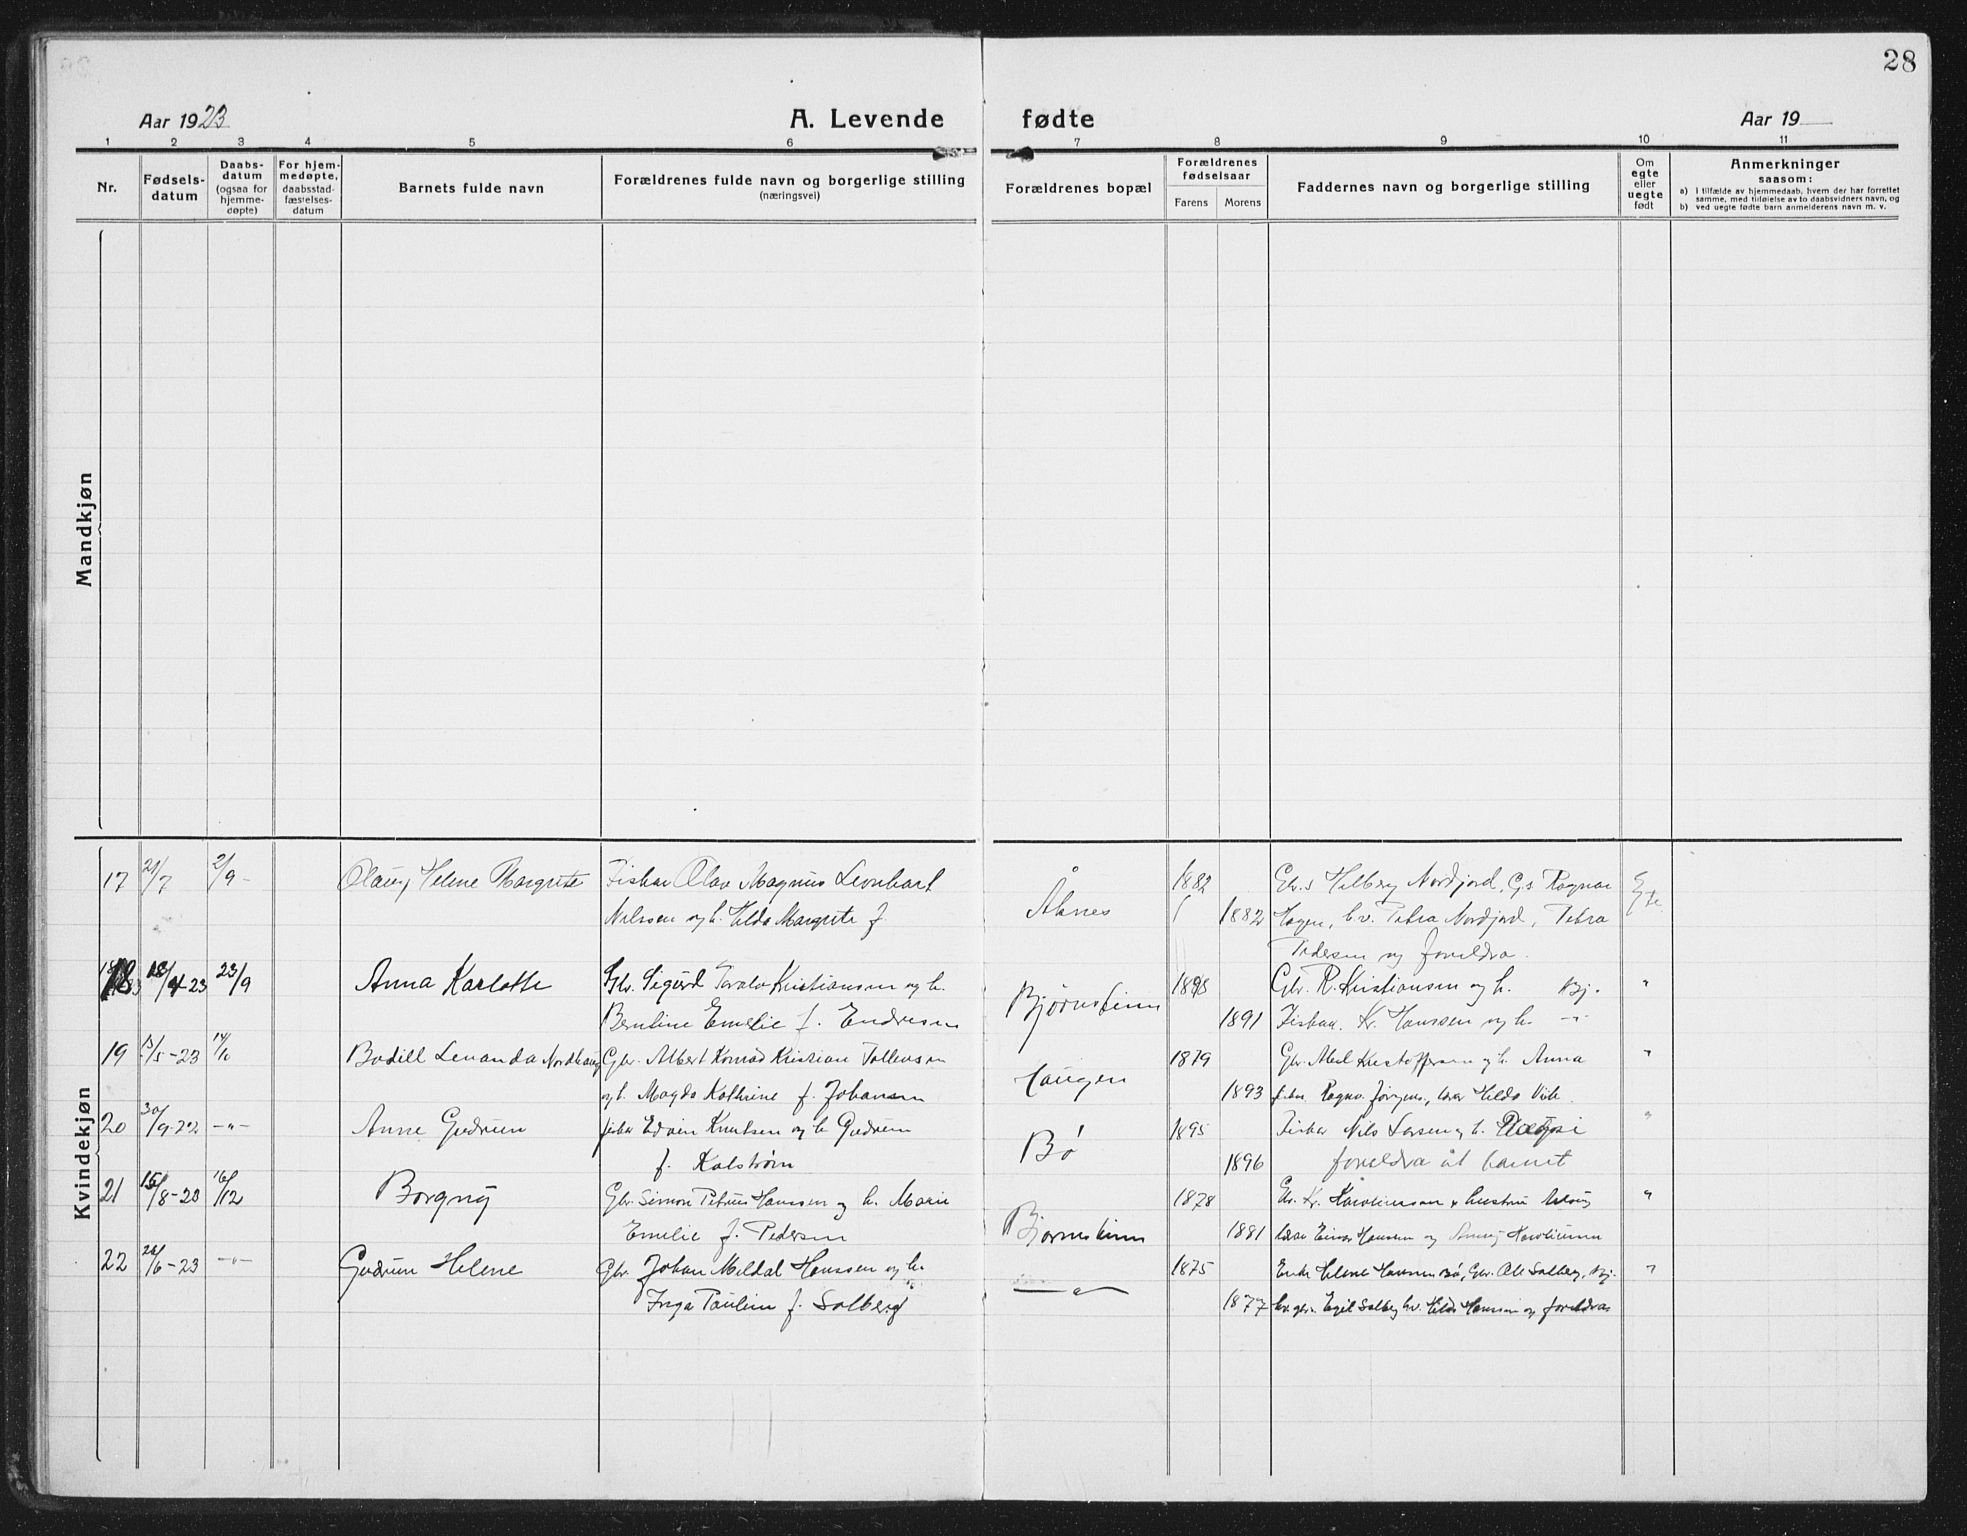 28
Aar 1923
A. Levende
fødte
Aar 19
1 2 3 4 5 6 7 8 9 10 11
Nr.
Fødsels-
datum
Daabs-
datum
(ogsaa for
hjemme-
døpte)
For hjem-
medøpte,
daabsstad-
fæstelses-
datum
Barnets fulde navn
Forældrenes fulde navn og borgerlige stilling
(næringsvei)
Forældrenes bopæl
Forældrenes
fødselsaar
Farens Morens
Faddernes navn og borgerlige stilling
Om
egte
eller
uegte
født
Anmerkninger
saasom:
a) i tilfælde av hjemmedaab, hvem der har forrettet
samme, med tilføielse av to daabsvidners navn, og
b) ved uegte fødte barn anmelderens navn m. v.
Mandkjøn
Kvindekjøn
17 21/7 2/9 - Olaug Helene Margrete Fisker Olav Magnus Leonhart
Nilssen og h. Hilda Margrete f.
Åknes 1882
1882
Nordjord, Ragnar
Hagen, Petra Nordjord, Petra
Pedersen og foreldra.
18 18/4 23 23/9 Anna Karlotte Gbr. Sigurd Kristiansen og h.
Berntine Emelie f. Endresen
Bjørnskinn
1891
Gbr. R. Kristiansen og h. Bj. "
Fisker Kr. Hanssen og h. -"-
19 15/5 - 23 14/10 Bodill Lenanda Nordhaug Gbr. Albert Konrad Kristian Tollevsen
og h. Magda Kathrine f. Johansen
Haugen 1879
1893
Gbr. Kristoffersen og h. Anna "
fisker Hilda
20 30/9 - 22 -"- Anne Gudrun fisker Edvin Knutsen og h. Gudrun
f. Kalstrøm
Bø 1895
1896
Fisker Nils Larsen og h. "
foreldra åt barnet
21 15/8 - 23 16/12 Borgny Gbr. Simon Petrus Hanssen og h. Marie
Emelie f. Pedersen
Bjørnskinn 1878
1881
Gbr. Kr. hustru "
Einar Hansen og
22 26/6 - 23 -"- Gudrun Helene Gbr. Johan Meldal Hanssen og h.
Inga Pauline f. Solberg
-"- 1875
1877
Enke Helene Hansen Bø, Gbr. Ole Solberg, Bj. "
Egil Solberg Hilda Hanssen og foreldra